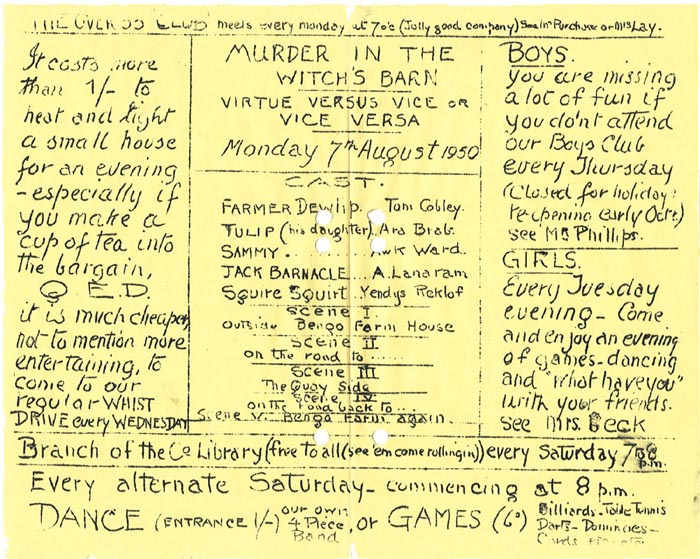 THE OVER 55 CLUB meets every monday at 7 o'c (Jolly good company) See Mr Purchase or Mrs Lay.
It costs more
than 1/- to
heat and light
a small house
for an evening
- especially if
you make a
cup of tea into
the bargain,
Q.E.D.
it is much cheaper,
not to mention more
entertaining, to
come to our
regular WHIST
DRIVE every WEDNESDAY
MURDER IN THE
WITCH'S BARN
VIRTUE VERSUS VICE OR
VICE VERSA
Monday 7th August 1950
CAST.
FARMER DEWLIP. Tom Cobley.
TULIP (his daughter). Ara Brab.
SAMMY . . . . Awk Ward.
JACK BARNACLE . . A. Lanaram
Squire Squirt. Yendys Reklof
SCENE I
outside Bengo Farm House
SCENE II
on the road to ......
SCENE III
The Quay Side
SCENE IV
on the road back to ...
Scene V. Bengo Farm again
BOYS.
you are missing
a lot of fun if
you don't attend
our Boys Club
every Thursday
(Closed for holidays
re-opening early Oct.)
see Mr Phillips.
GIRLS.
Every Tuesday
evening - Come
and enjoy an evening
of games - dancing
and "what have you"
with your friends.
See Mrs. Beck
Branch of the Co Library (free to all (see 'em come rolling in)) every Saturday 7 p.m.
Every alternate Saturday - commencing at 8 p.m.
DANCE (ENTRANCE 1/-) our own
4 Piece
Band
or GAMES (6d)
Billiards - Table Tennis
Darts - Dominoes -
Cards